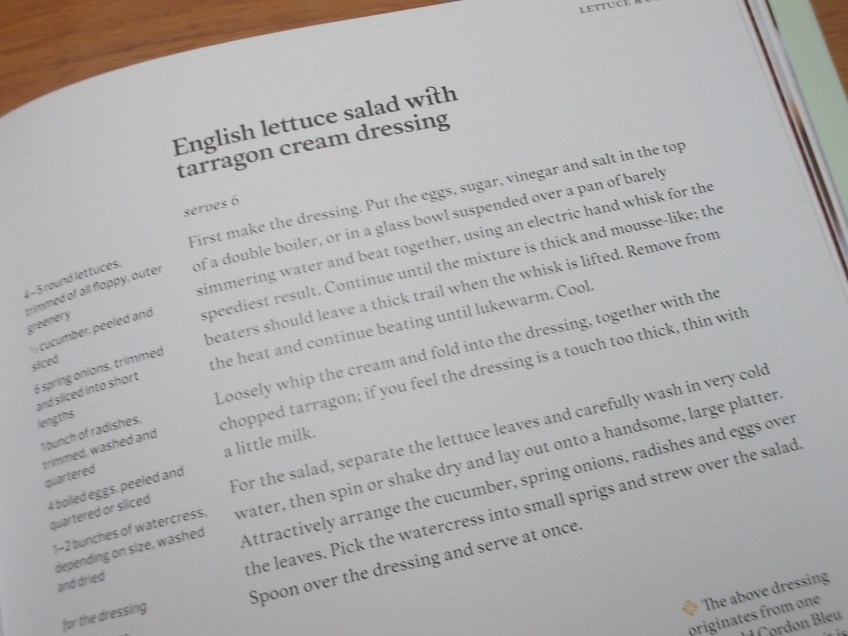 LETTUCE &
English lettuce salad with
tarragon cream dressing
serves 6
4–5 round lettuces,
trimmed of all floppy, outer
greenery
½ cucumber, peeled and
sliced
6 spring onions, trimmed
and sliced into short
lengths
1 bunch of radishes,
trimmed, washed and
quartered
4 boiled eggs, peeled and
quartered or sliced
1–2 bunches of watercress,
depending on size, washed
and dried
for the dressing
First make the dressing. Put the eggs, sugar, vinegar and salt in the top
of a double boiler, or in a glass bowl suspended over a pan of barely
simmering water and beat together, using an electric hand whisk for the
speediest result. Continue until the mixture is thick and mousse-like; the
beaters should leave a thick trail when the whisk is lifted. Remove from
the heat and continue beating until lukewarm. Cool.
Loosely whip the cream and fold into the dressing, together with the
chopped tarragon; if you feel the dressing is a touch too thick, thin with
a little milk.
For the salad, separate the lettuce leaves and carefully wash in very cold
water, then spin or shake dry and lay out onto a handsome, large platter.
Attractively arrange the cucumber, spring onions, radishes and eggs over
the leaves. Pick the watercress into small sprigs and strew over the salad.
Spoon over the dressing and serve at once.
The above dressing
originates from one
Cordon Bleu